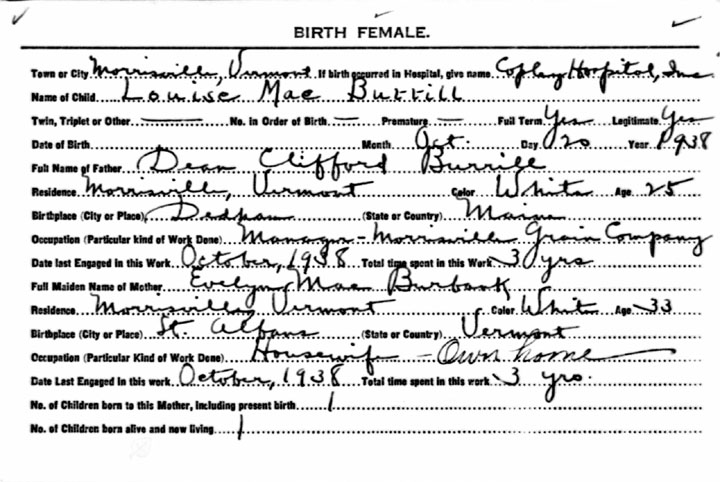 BIRTH FEMALE.
Town or City Morrisville, Vermont If birth occurred in Hospital, give name Copley Hospital, Inc.
Name of Child Louise Mae Burrill
Twin, Triplet or Other — No. in Order of Birth — Premature — Full Term Yes Legitimate Yes
Date of Birth Month Oct. Day 20 Year 1938
Full Name of Father Dean Clifford Burrill
Residence Morrisville, Vermont Color White Age 25
Birthplace (City or Place) Dedham (State or Country) Maine
Occupation (Particular kind of Work Done) Manager - Morrisville Grain Company
Date last Engaged in this Work October, 1938 Total time spent in this Work 3 yrs
Full Maiden Name of Mother Evelyn Mae Burbank
Residence Morrisville, Vermont Color White Age 33
Birthplace (City or Place) St. Albans (State or Country) Vermont
Occupation (Particular Kind of Work Done) Housewife - Own home
Date Last Engaged in this work October, 1938 Total time spent in this work 3 yrs.
No. of Children born to this Mother, including present birth 1
No. of Children born alive and now living 1